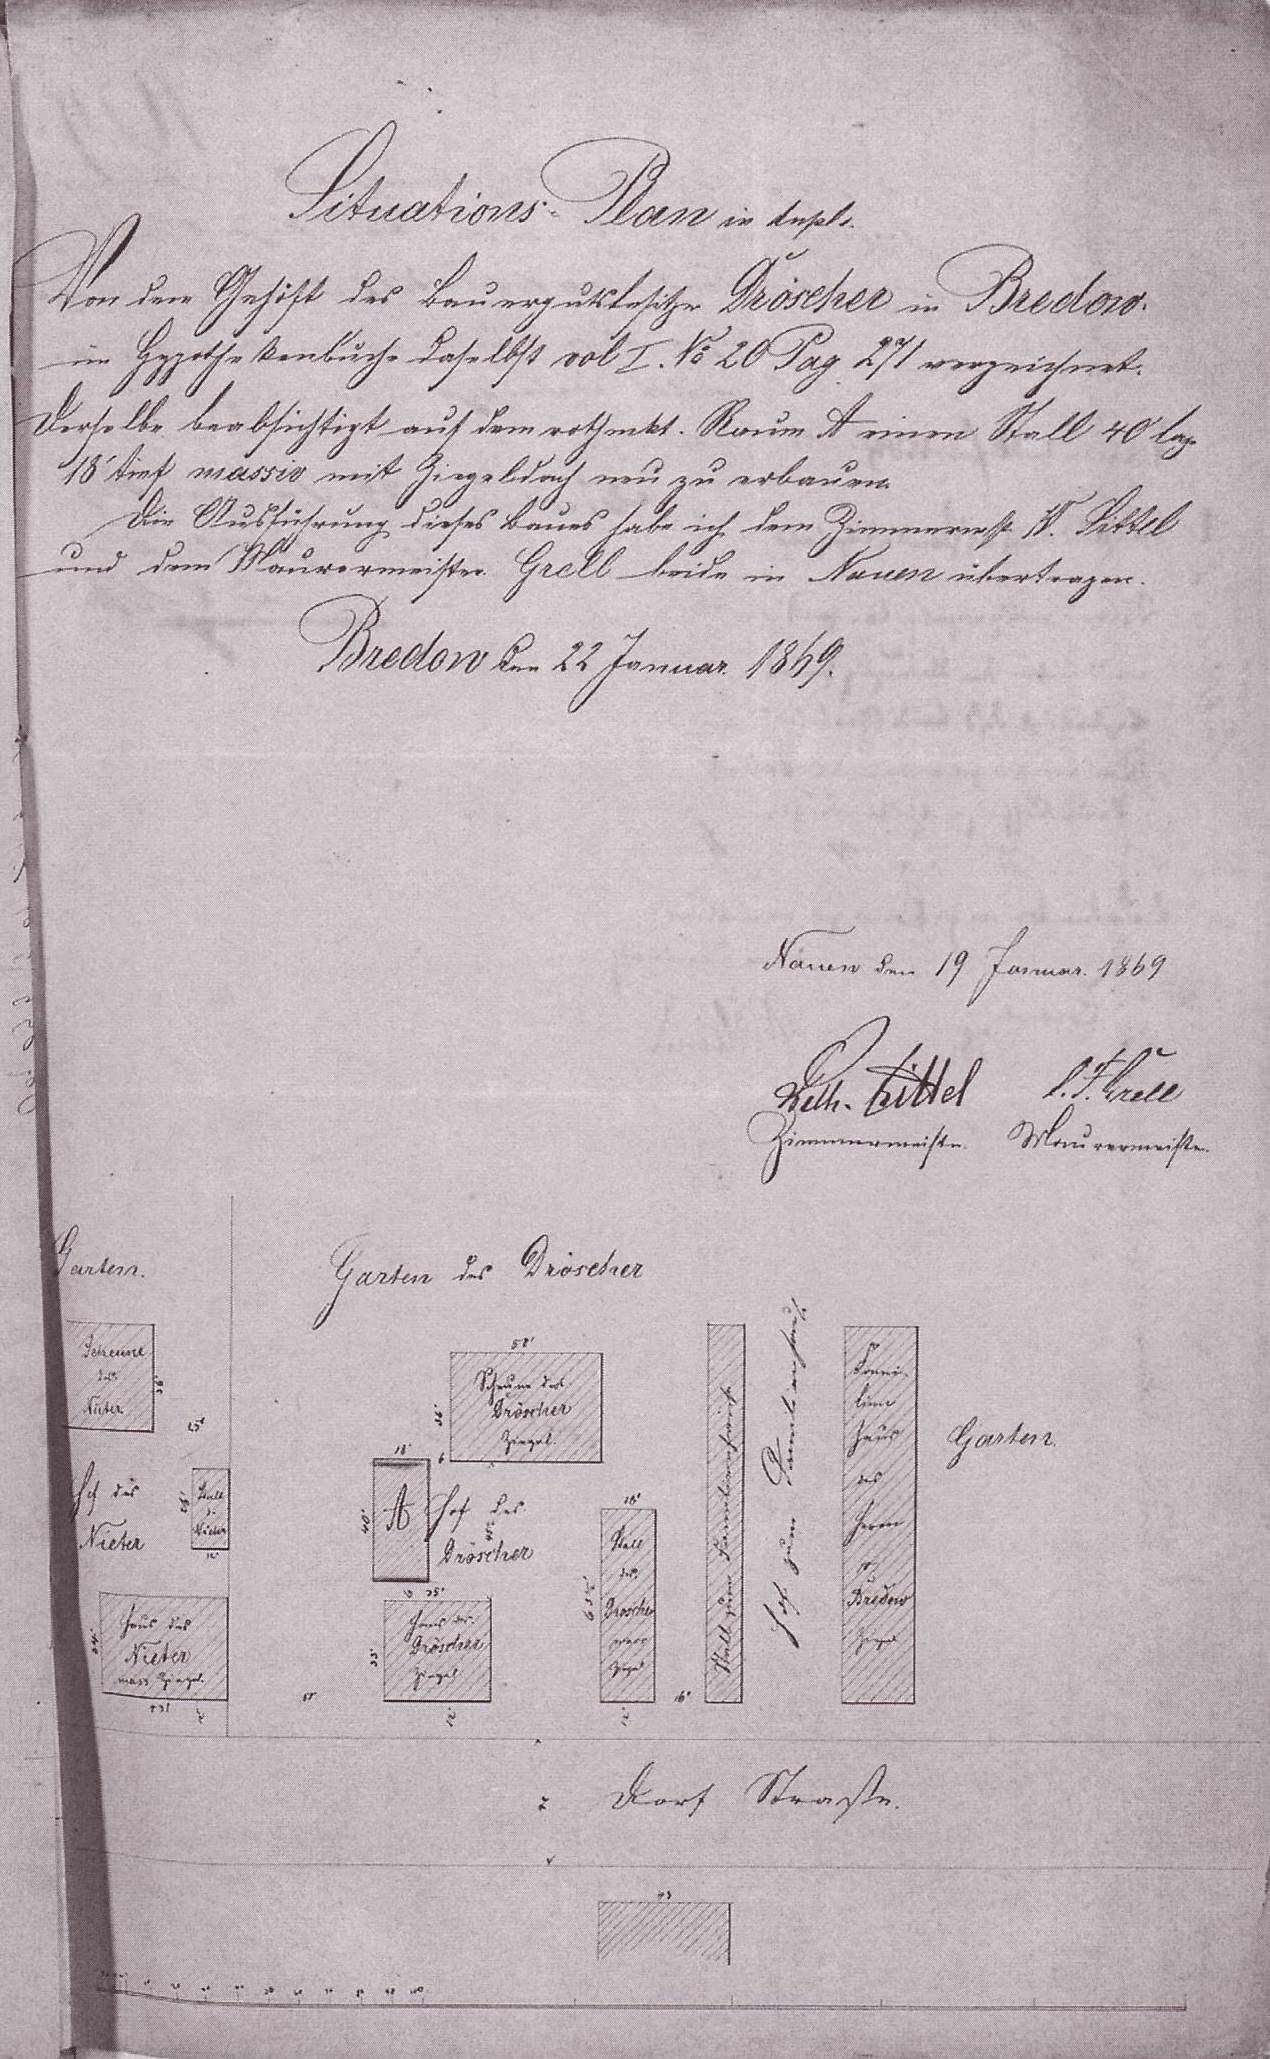 Situations-Plan in duplo.
Von dem Gehöft des Bauergutsbesitzer Dröscher in Bredow.
im Hypothekenbuche daselbst vol I. No 20 Pag 271 verzeichnet.
Derselbe beabsichtigt auf dem roth mkt. Raum A einen Stall 40' lag
18' tief massiv mit Ziegeldach neu zu erbauen.
Die Ausführung dieses Baues habe ich dem Zimmermstr. W. Zittel
und dem Maurermeister Grell beide in Nauen übertragen.
Bredow den 22 Januar. 1869.
Nauen den 19 Januar. 1869
Wilh. Zittel C. F. Grell
Zimmermeister. Maurermeister.
Garten.
Garten des Dröscher
Scheune
des
Nieter.
Hof des
Nieter
Stall
d.
Nieter
Haus des
Nieter
mass Ziegel.
52'
36'
Scheune des
Dröscher
Ziegel.
18'
40'
A
Hof des
Dröscher
35'
33'
Haus des
Dröscher
Ziegel
12'
18'
Stall
des
Dröscher
mass
Ziegel
12'
16'
Stall zum Familienhause
Hof zum Familienhaus.
Fami-
lien
Haus
des
Herrn
v.
Bredow
Ziegel
Garten.
Dorf Straße.
43